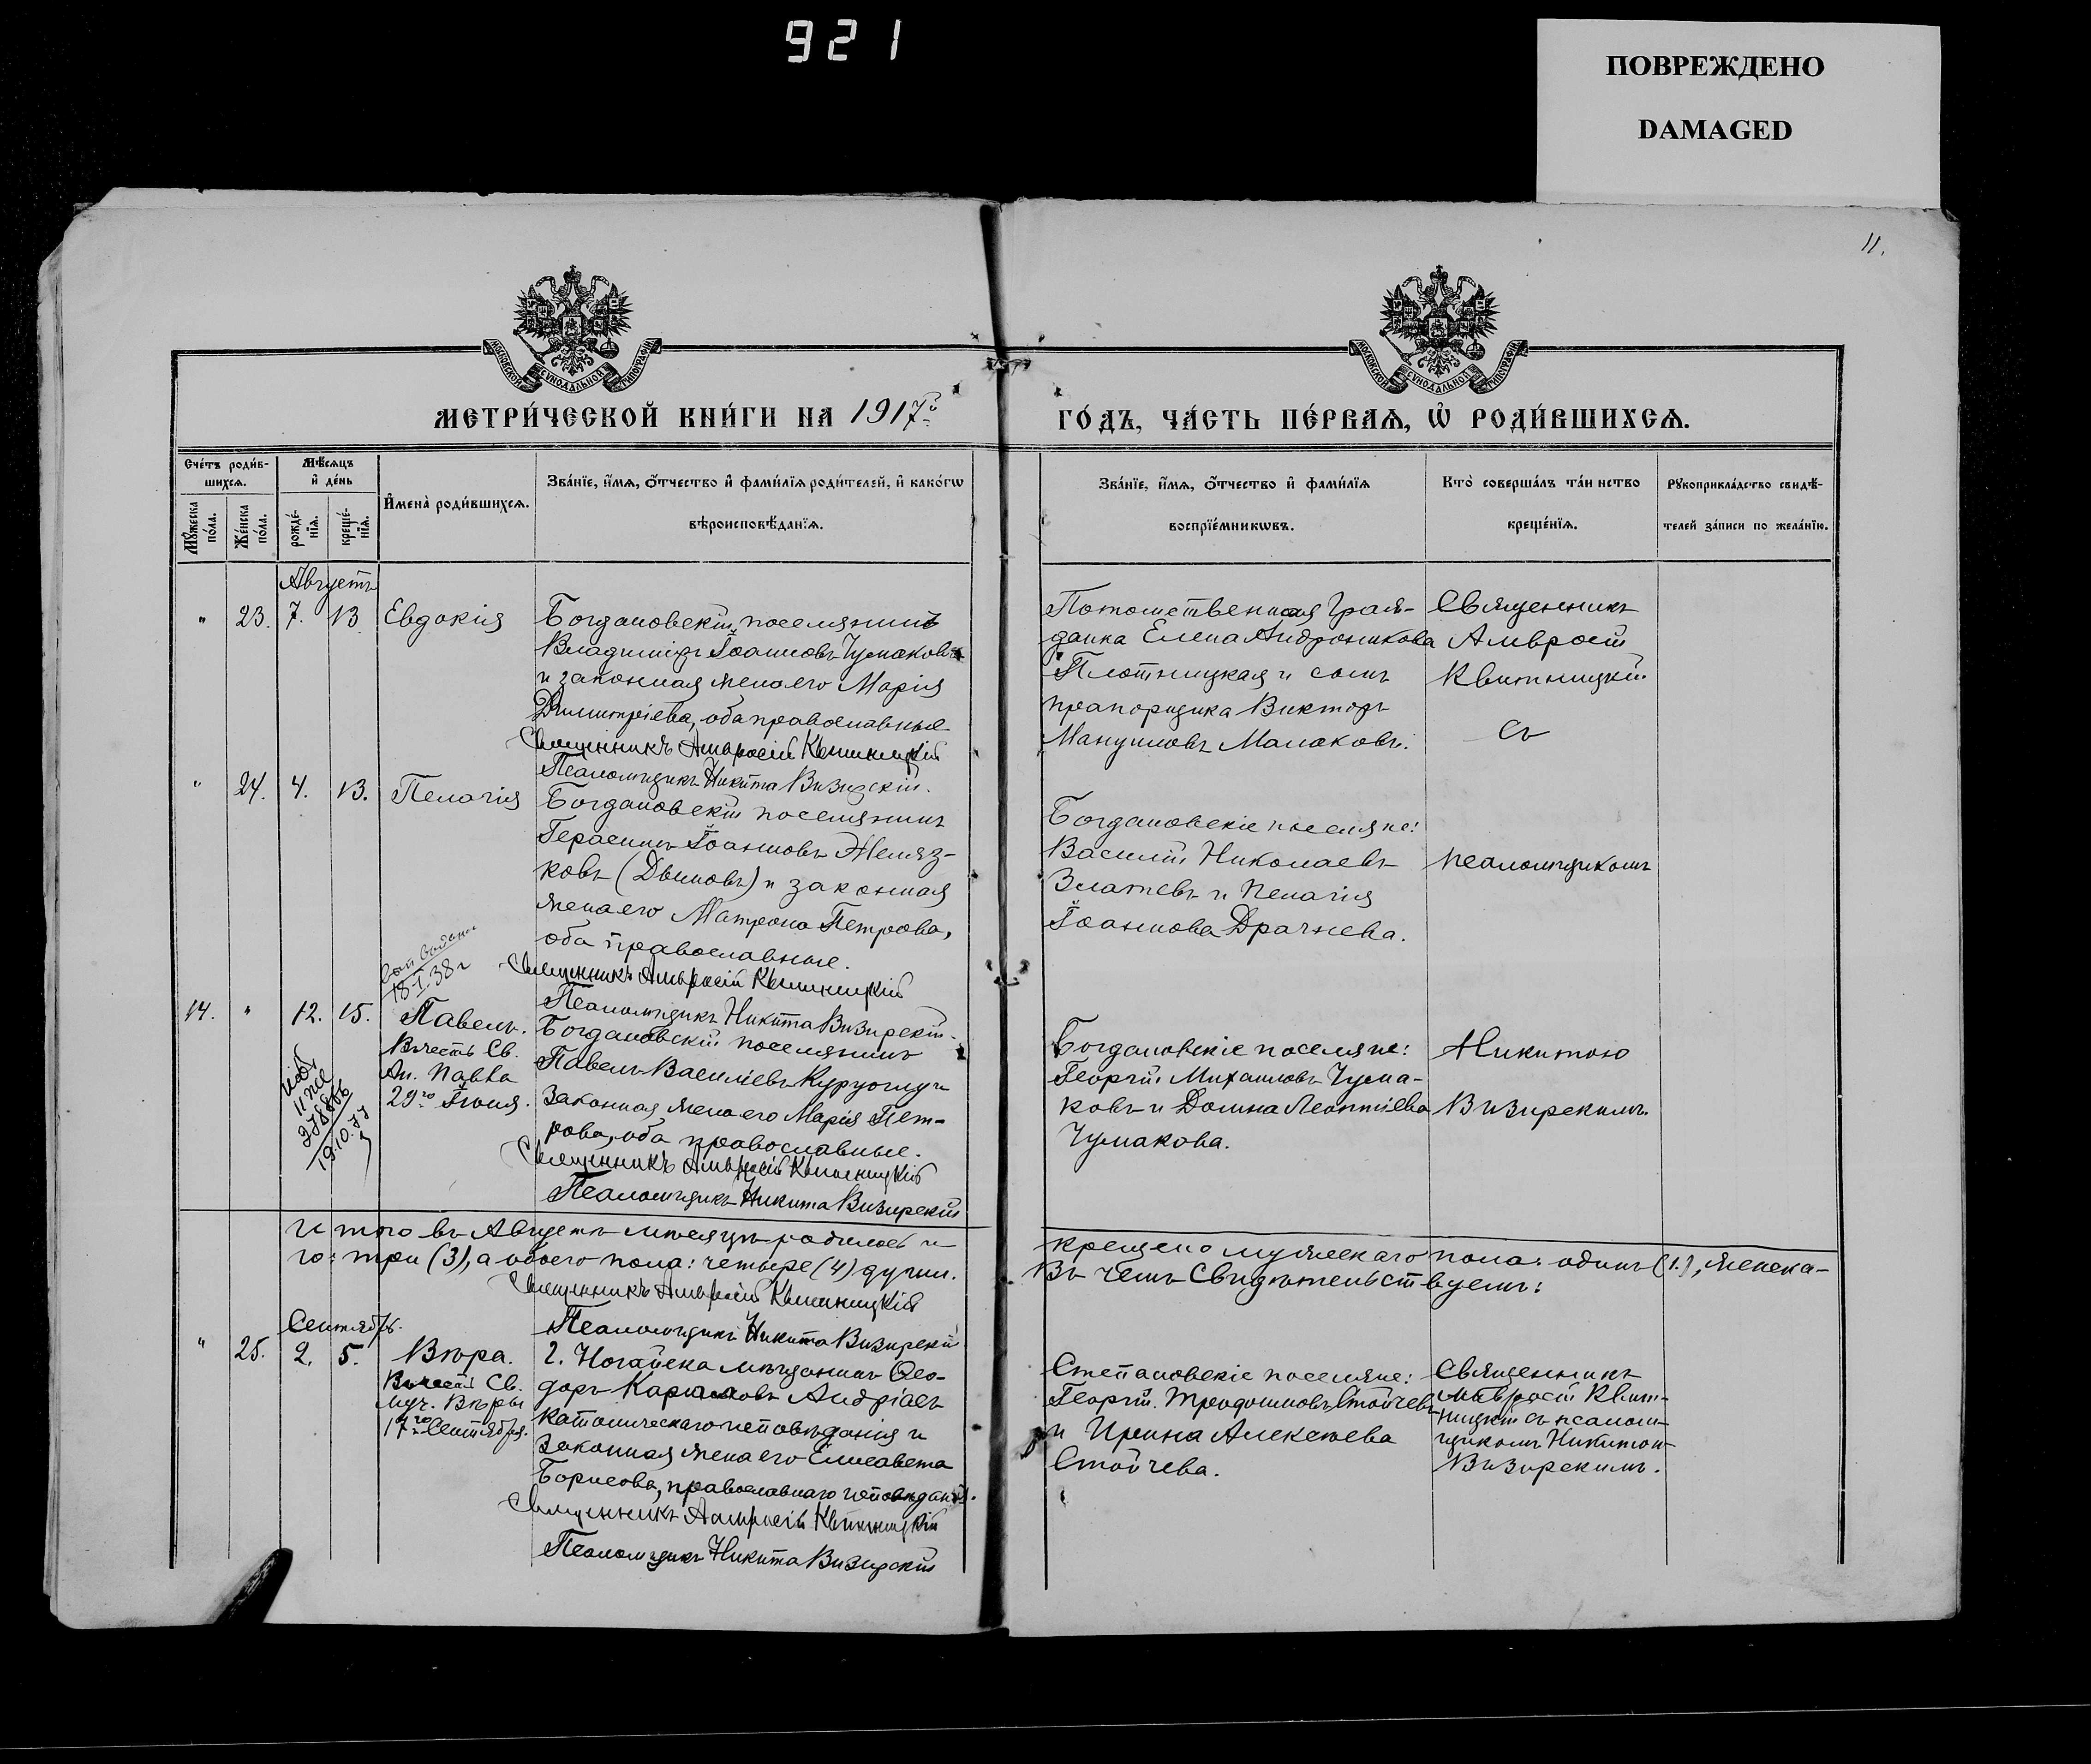 921
ПОВРЕЖДЕНО
DAMAGED
11.
МОСКОВСКОЙ СѴНОДАЛЬНОЙ ТИПОГРАФІИ
МОСКОВСКОЙ СѴНОДАЛЬНОЙ ТИПОГРАФІИ
МЕТРИ́ЧЕСКОЙ КНИ́ГИ НА 1917й
ГО́ДЪ, ЧА́СТЬ ПЕ́РВАѦ, Ѡ РОДИ́ВШИХСѦ.
Сче́тъ роди́в-
шихсѧ.
Мꙋ́жеска по́ла.
Же́нска по́ла.
Мѣ́сѧцъ и҆ де́нь
рожде́-
нїѧ.
креще́-
нїѧ.
И҆мена̀ роди́вшихсѧ.
Зва́нїе, и҆́мѧ, ѻ҆́тчество и҆ фами́лїѧ роди́телей, и҆ како́гѡ
вѣроисповѣ́данїѧ.
Зва́нїе, и҆́мѧ, ѻ҆́тчество и҆ фами́лїѧ
воспрїе́мникѡвъ.
Кто̀ соверша́лъ та́инство
креще́нїѧ.
Рꙋкоприкла́дство свидѣ́-
телей за́писи по жела́нїю.
Августъ
" 23. 7. 13 Евдокія
Богдановскій поселянинъ
Владиміръ Іоанновъ Чумаковъ
и законная жена его Марія
Димитріева, оба православные
Священникъ Амвросій Квитницкій
Псаломщикъ Никита Визирскій.
Потомственная граж-
данка Елена Андроникова
Плотницкая и сынъ
прапорщика Викторъ
Мануиловъ Малаковъ.
Священникъ
Амвросій
Квитницкій
съ
" 24. 4. 13. Пелагія
Богдановскій поселянинъ
Герасимъ Іоанновъ Желяз-
ковъ (Дымовъ) и законная
жена его Матрона Петрова,
оба православные.
Священникъ Амвросій Квитницкій
Псаломщикъ Никита Визирскій.
Богдановскіе поселяне:
Василій Николаевъ
Златевъ и Пелагія
Іоаннова Драгнева.
псаломщикомъ
18-I.38г
14. " 12. 15. Павелъ.
Въ честь Св.
Ап. Павла
29го Іюня.
II ЖС
19.10.77
Богдановскій поселянинъ
Павелъ Василіевъ Куруоглу и
законная жена его Марія Пет-
рова, оба православные.
Священникъ Амвросій Квитницкій
Псаломщикъ Никита Визирскій
Богдановскіе поселяне:
Георгій Михаиловъ Чума-
ковъ и Домна Леонтіева
Чумакова.
Никитою
Визирскимъ.
Итого въ Августѣ мѣсяцѣ родилось и
крещено мужескаго пола: одинъ (1.), женска-
го: три (3), а обоего пола: четыре (4) души.
Въ чемъ свидѣтельствуемъ:
Священникъ Амвросій Квитницкій
Псаломщикъ Никита Визирскій
Сентябрь.
" 25. 2. 5. Вѣра.
Въ честь Св.
муч. Вѣры
17го Сентября.
г. Ногайска мѣщанинъ Ѳео-
доръ Андріасъ
католическаго исповѣданія и
законная жена его Елисавета
Борисова, православнаго исповѣданія.
Священникъ Амвросій Квитницкій
Псаломщикъ Никита Визирскій
Степановскіе поселяне:
Георгій Стойчевъ
и Ирина Алексѣева
Стойчева.
Священникъ
Амвросій Квит-
ницкій съ псалом-
щикомъ Никитою
Визирскимъ.